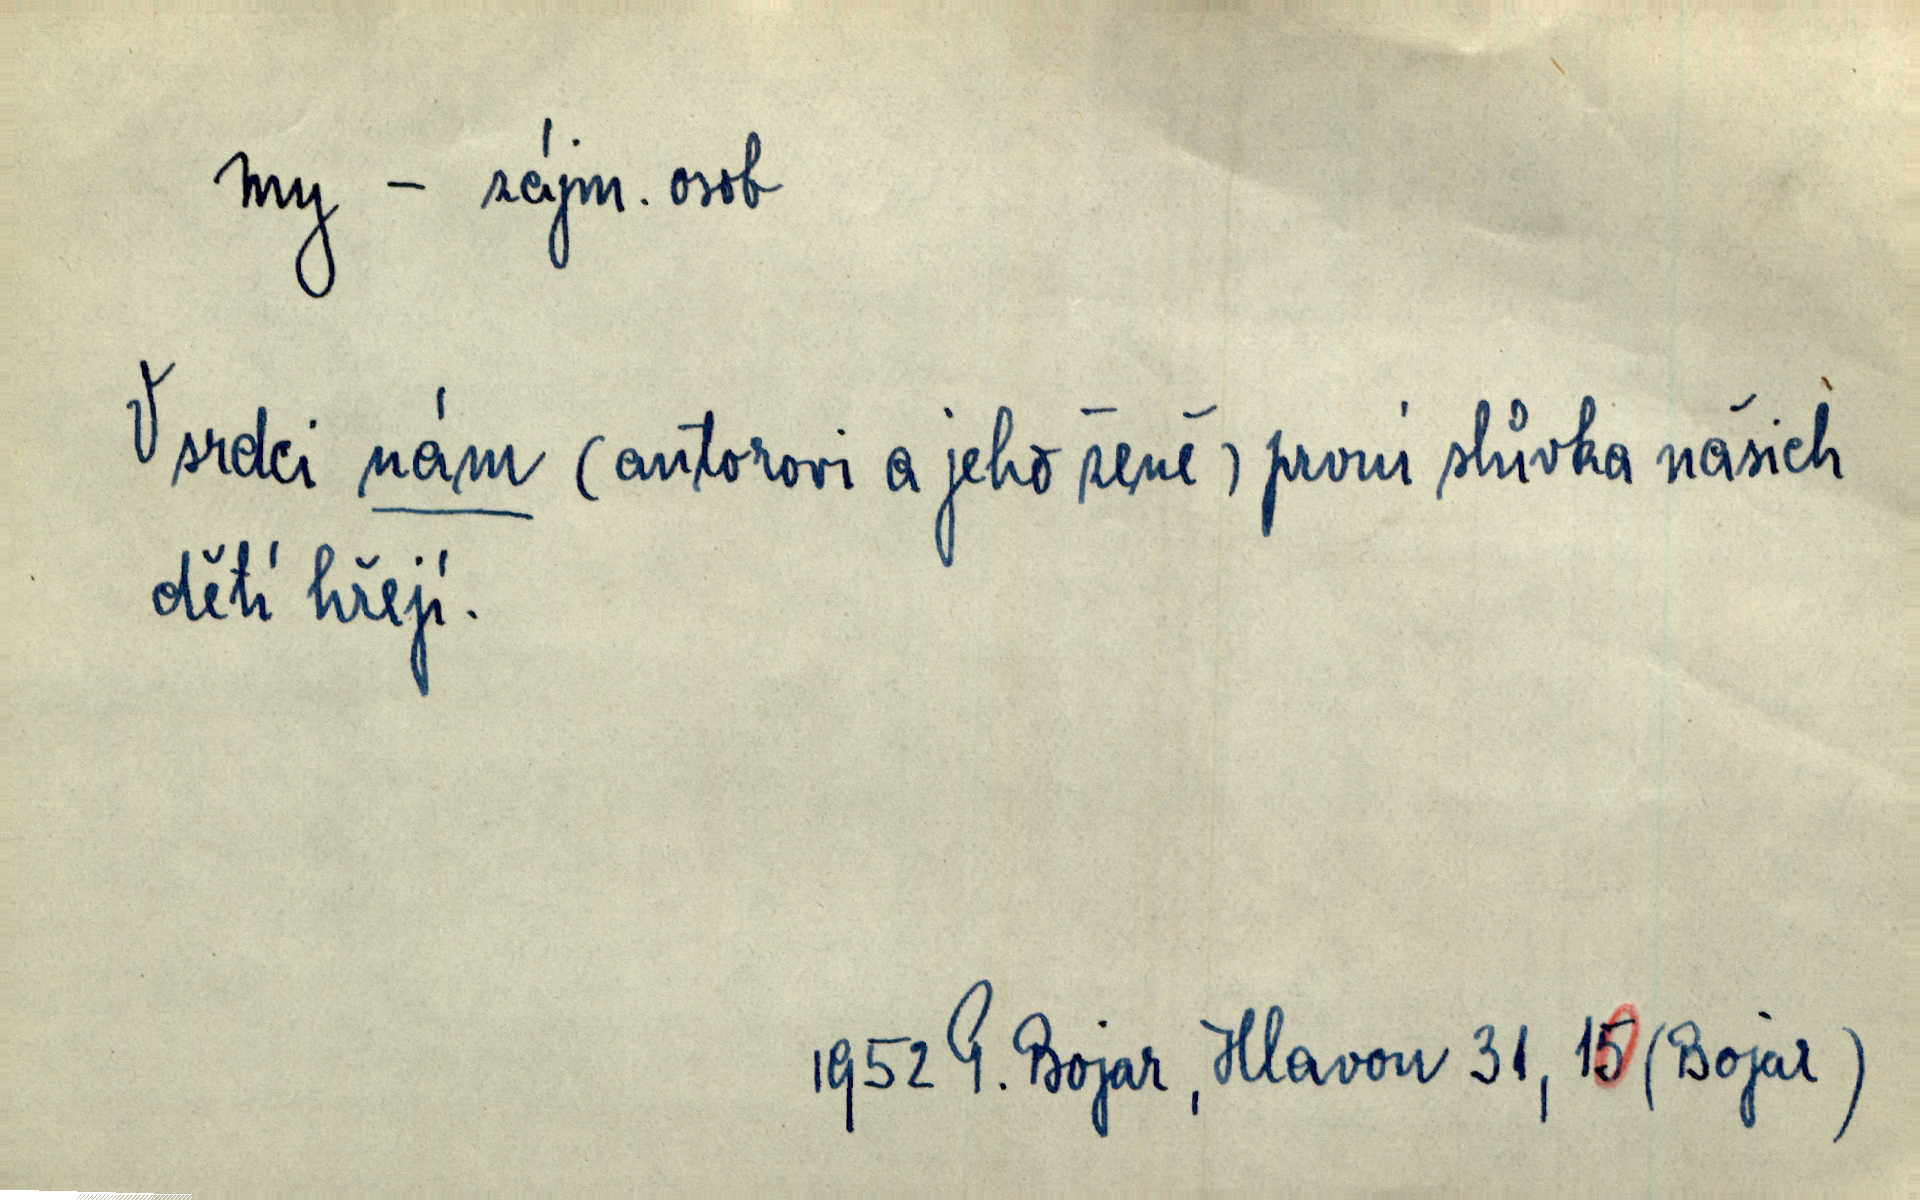 my – zájm. osob
V srdci nám (autorovi a jeho ženě) první slůvka našich
dětí hřejí.
1952 P. Bojar, Hlavou 31, 15 (Bojar)